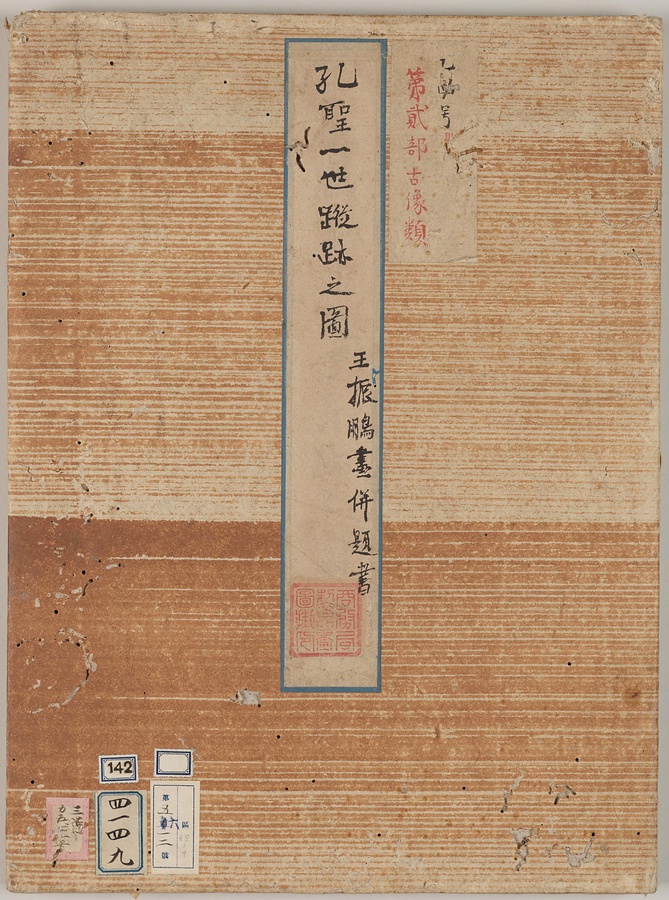 号
第貳部古像類
孔聖一世蹤跡之圖
王振鵬畫併題書
142
四一四九
第
區
號